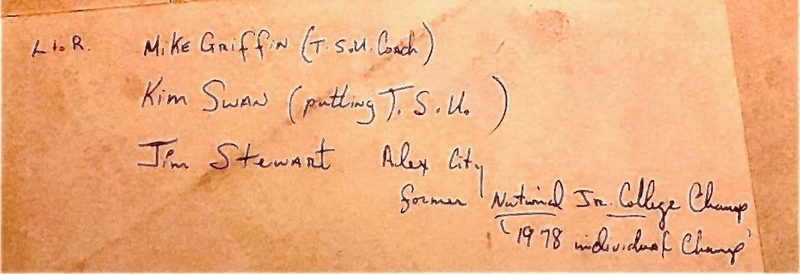 L to R. Mike Griffin (T.S.U. Coach)
Kim Swan (putting T.S.U.)
Jim Stewart Alex City
former National Jr. College Champ
'1978 individual Champ'